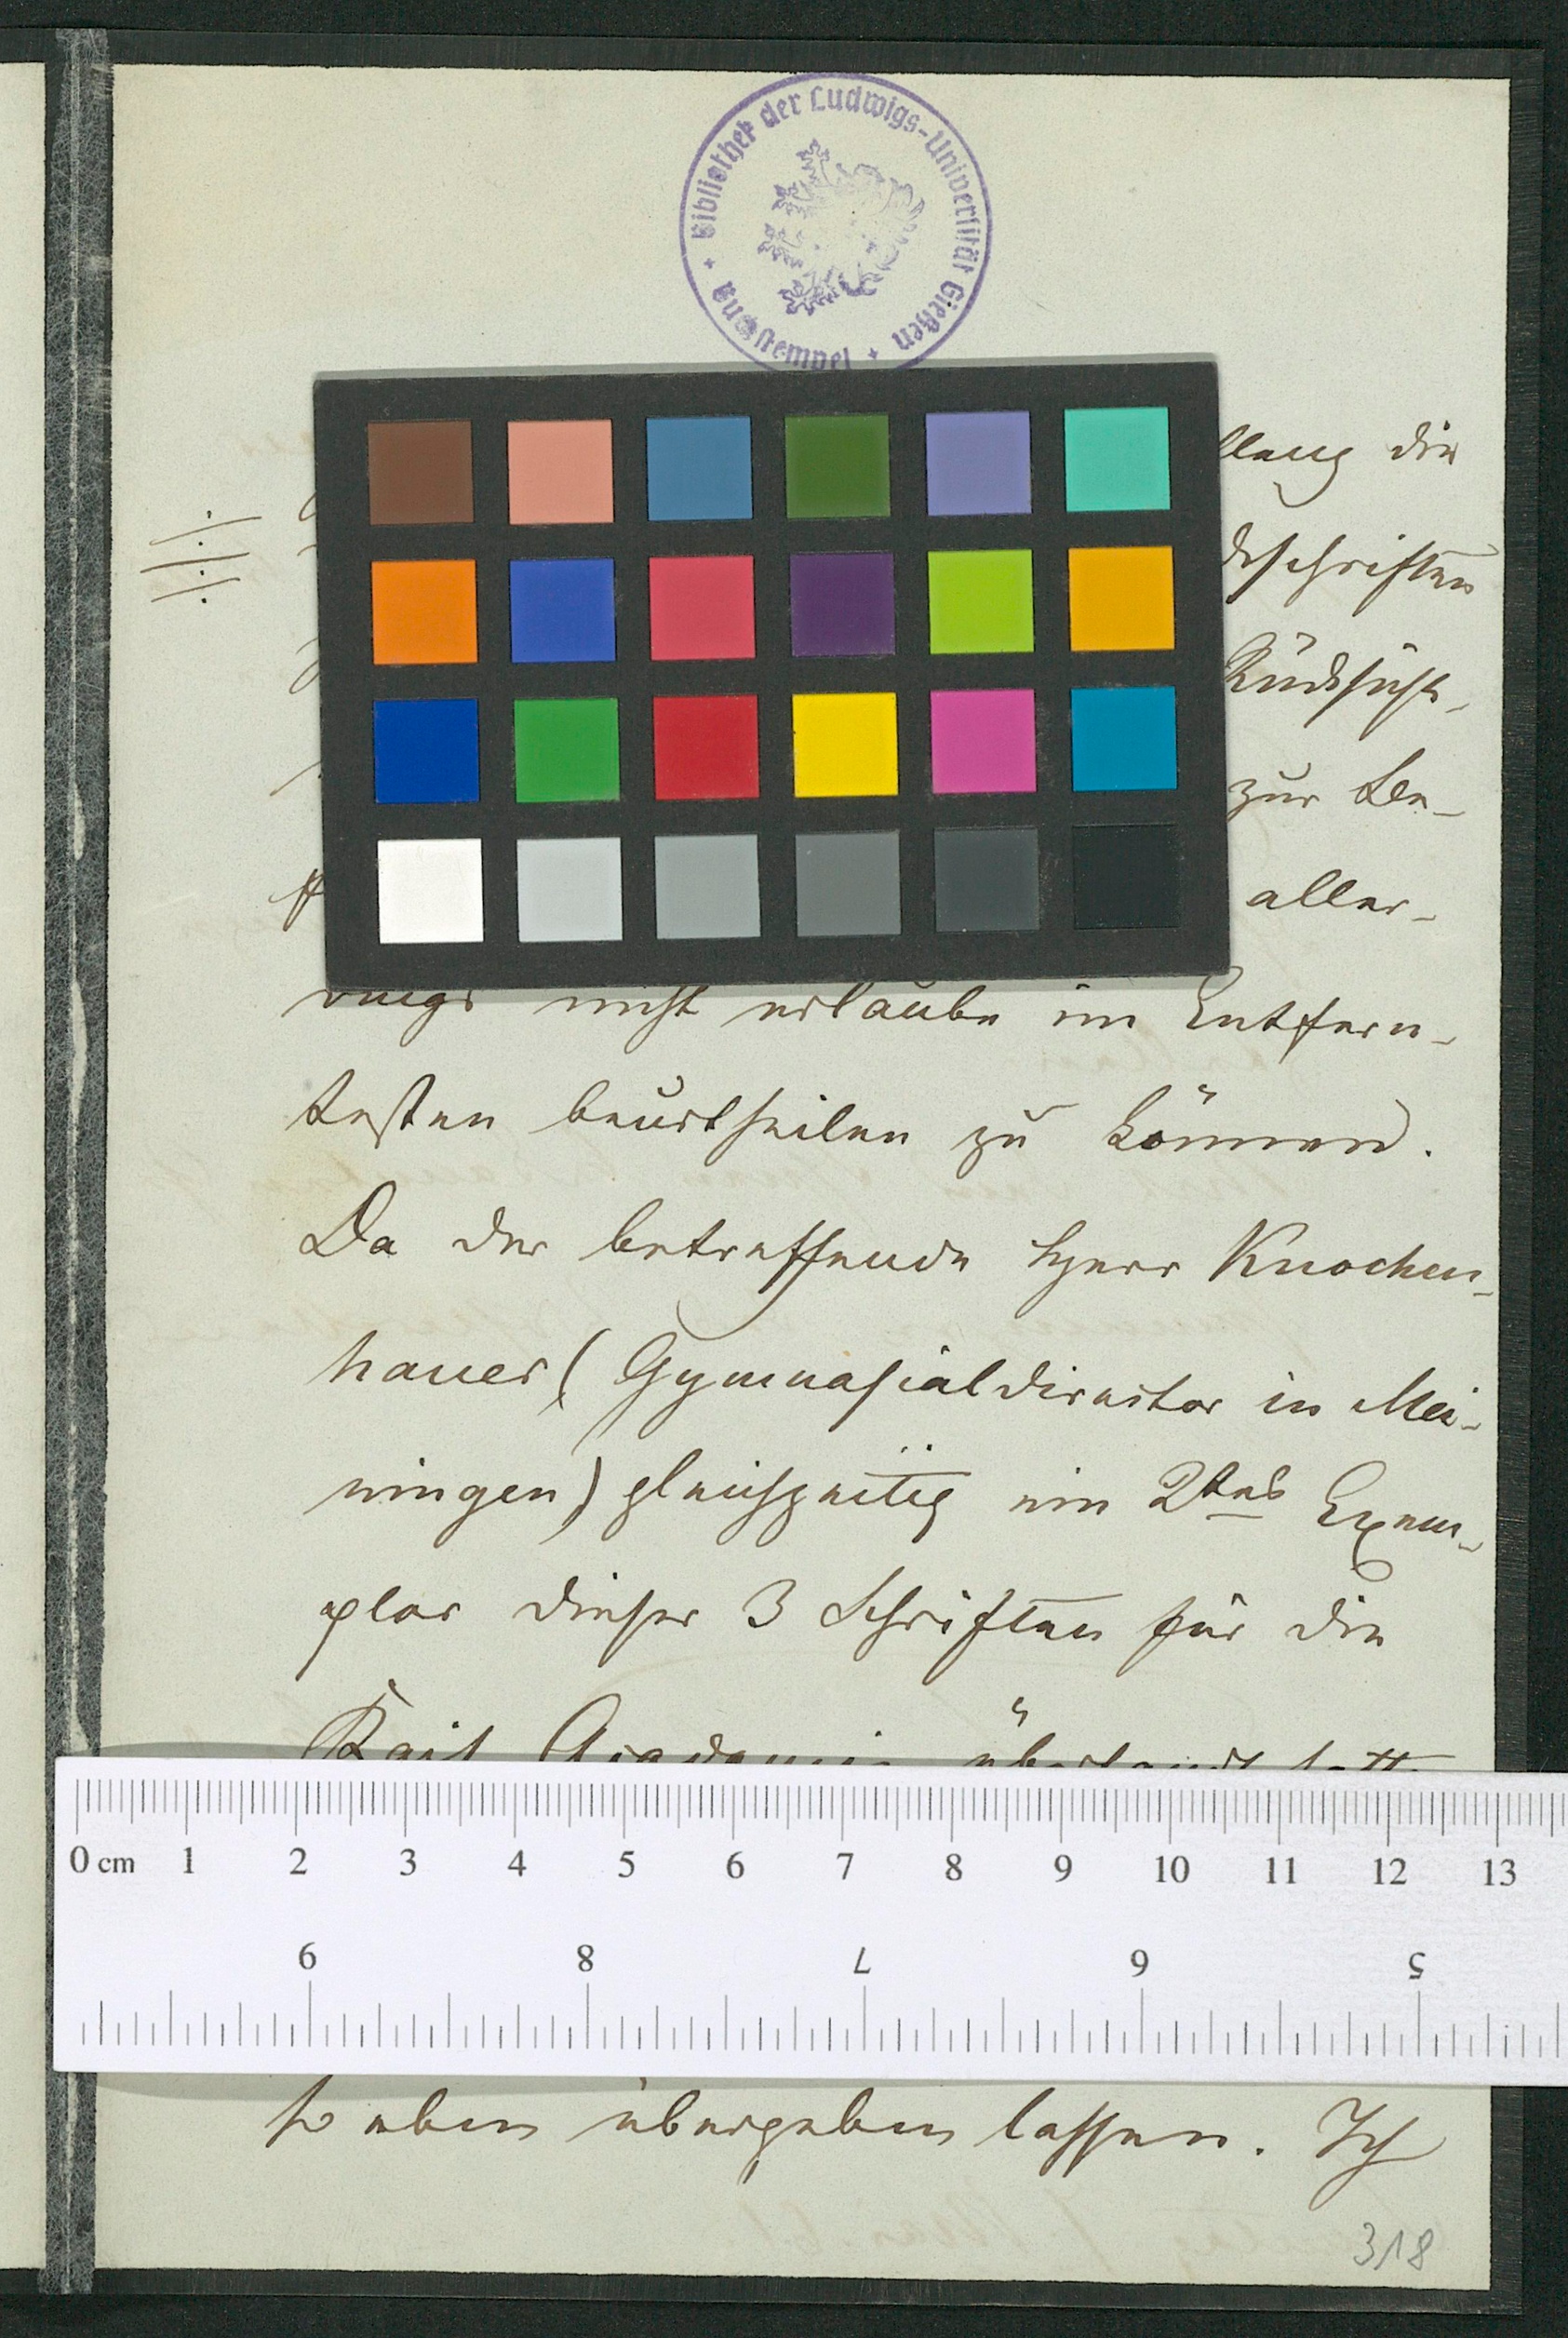 Bibliothek der Ludwigs-Universität Gießen
Buchstempel
die
dschriften
Rücksicht,
zur
aller-
dings nicht erlaube im Entfern-
testen beurtheilen zu können.
Da der betreffende Herr Knochen-
hauer (Gymnasialdirector in Mei-
ningen) gleichzeitig ein 2tes Exem-
plar dieser 3 Schriften für die
Kais Academie übersandt hatte
0 cm 1 2 3 4 5 6 7 8 9 10 11 12 13
9 8 7 6 5
so eben übergeben lassen. Ich
318